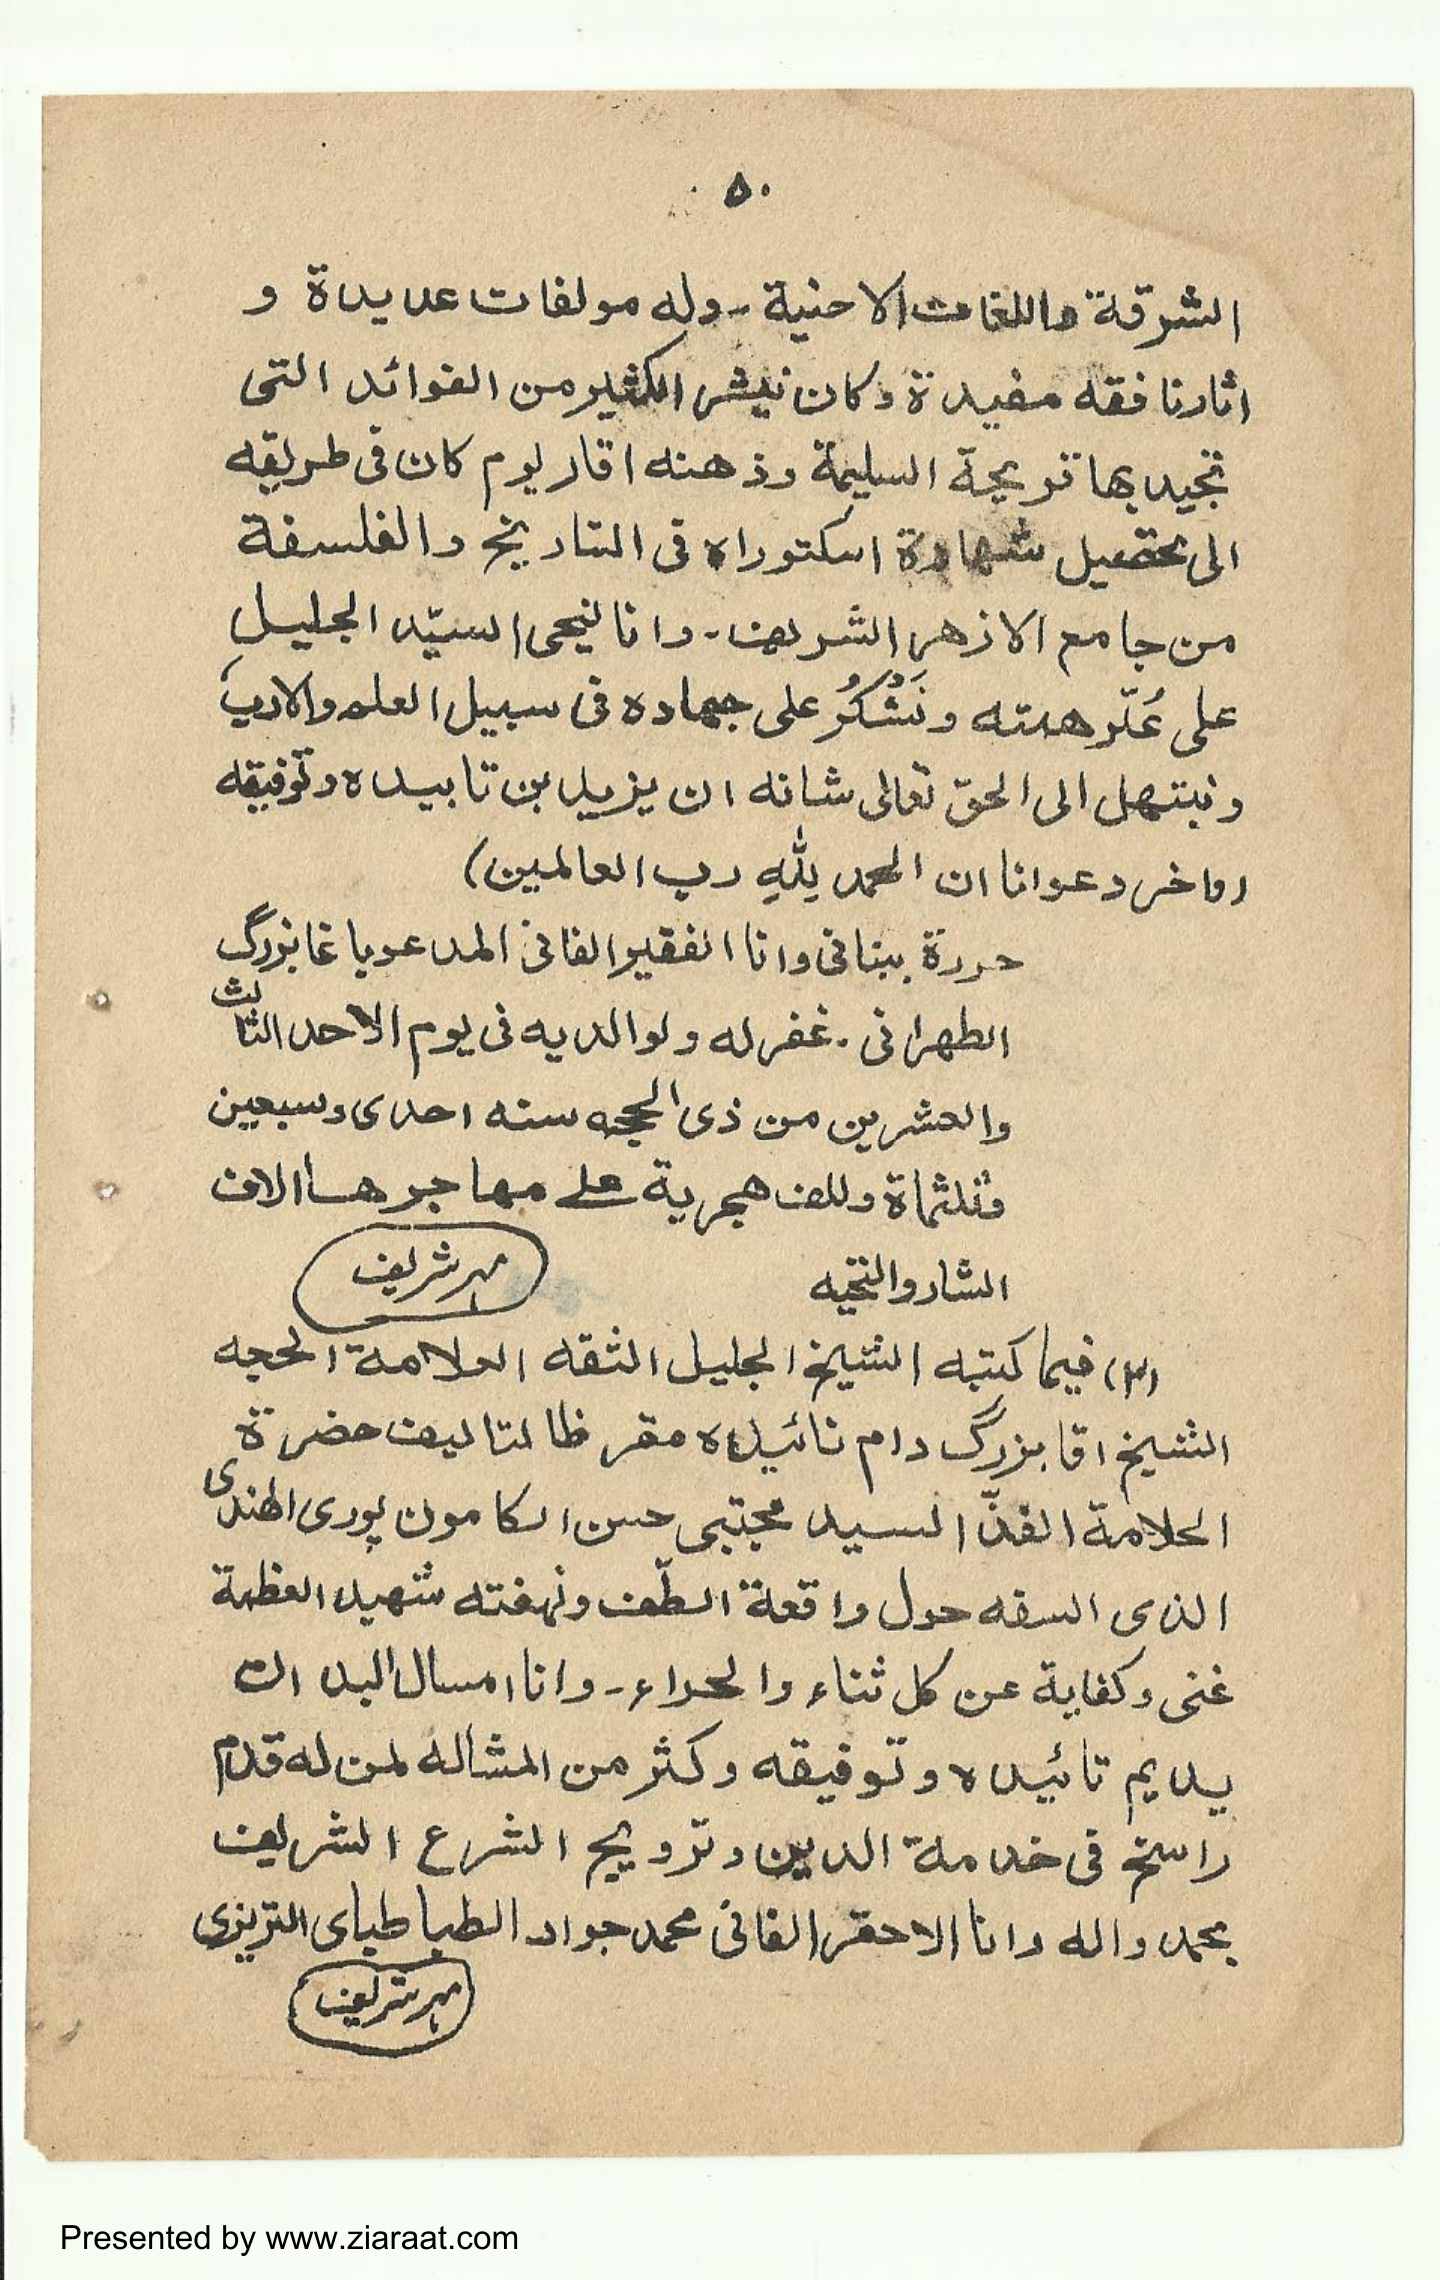 ٥٠
الشرقة واللغات الاحنية ـ وله مولفات عديدة و
اثارنا فقه مفيدة وكان نيشر الكثير من الفوائد التى
تجيد بها تريحة السليمة وذهنه اقار ليوم كان فى طريقه
الى تحصيل شهادة اسكتوراه فى التاريخ والفلسفة
من جامع الازهر الشريف ـ وانا لنيحى السيّد الجليل
على عُلّر همته ونَشْكُرُ على جهاده فى سبيل العلم والادب
ونبتهل الى الحقّ تعالى شانه ان يزيل بن تابيده وتوفيقه
اما خر دعوانا ان الحمد للهِ رب العالمين)
حررة ببنانى وانا الفقير الفانى المدعو باغا بزرگ
الطهرانى ۔ غفر له ولوالديه فى يوم الاحد الثالث
والعشرين من ذى الحجه سنه احدى وسبعين
وثلثماة وللف هجرية على مهاجرها الاف
الشار والتحيه
مهر شريف
(٣) فيما كتبه الشيخ الجليل الثقه العلامة الحجه
الشيخ اقا بزرگ دام تائيده مقر ظا لتاليف حضرة
العلامة الفذّ السيد مجتبى حسن الكامون پورى الهندى
الذى السفه حول واقعة الطّف ونهفته شهيد العظمة
غنى وكفاية عن كل ثناء والحداء ـ وانا امسال البد ان
يديم تائيده و توفيقه وكثر من المشاله لمن له قدم
راسخ فى خدمة الدين وترويج الشرع الشريف
بحمد واله وانا الاحقر الفانى محمد جواد الطباطباى التريزى
مهر شريف
Presented by www.ziaraat.com